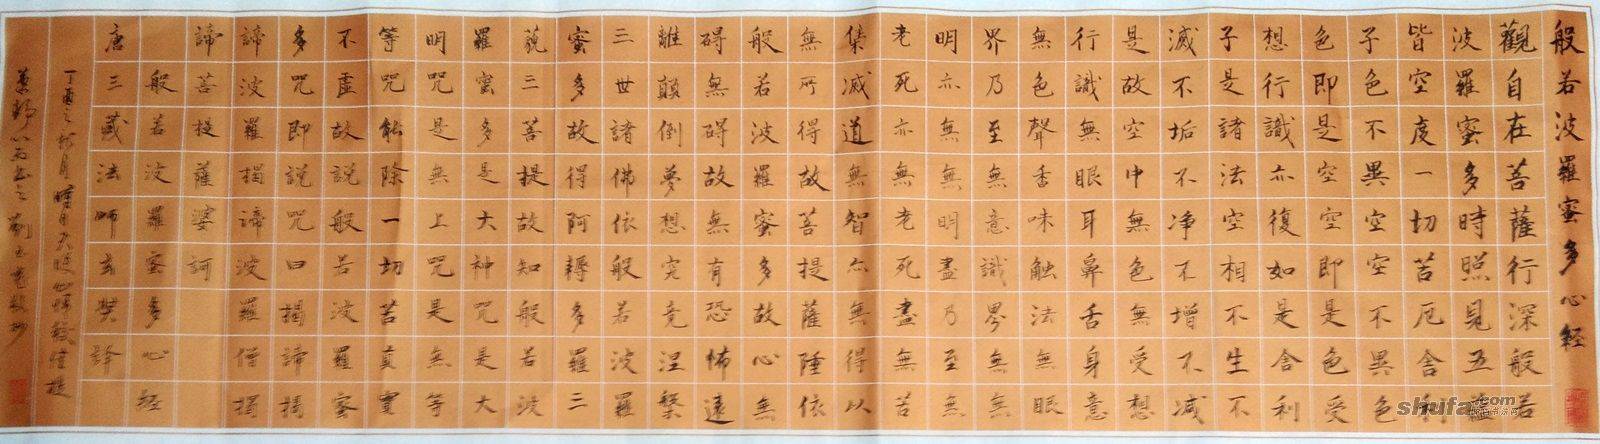 般若波羅蜜多心經
觀自在菩薩行深般若
波羅蜜多時照見五蘊
皆空度一切苦厄舍利
子色不異空空不異色
色即是空空即是色受
想行識亦復如是舍利
子是諸法空相不生不
滅不垢不净不增不減
是故空中無色無受想
行識無眼耳鼻舌身意
無色聲香味觸法無眼
界乃至無意識界無無
明亦無無明盡乃至無
老死亦無老死盡無苦
集滅道無智亦無得以
無所得故菩提薩埵依
般若波羅蜜多故心無
碍無碍故無有恐怖遠
離顛倒夢想究竟涅槃
三世諸佛依般若波羅
蜜多故得阿耨多羅三
藐三菩提故知般若波
羅蜜多是大神咒是大
明咒是無上咒是無等
等咒能除一切苦真實
不虛故說般若波羅蜜
多咒即說咒曰揭諦揭
諦波羅揭諦波羅僧揭
諦菩提薩婆訶
般若波羅蜜多心經
唐三藏法師玄奘譯
丁酉之秋月
shufa.com